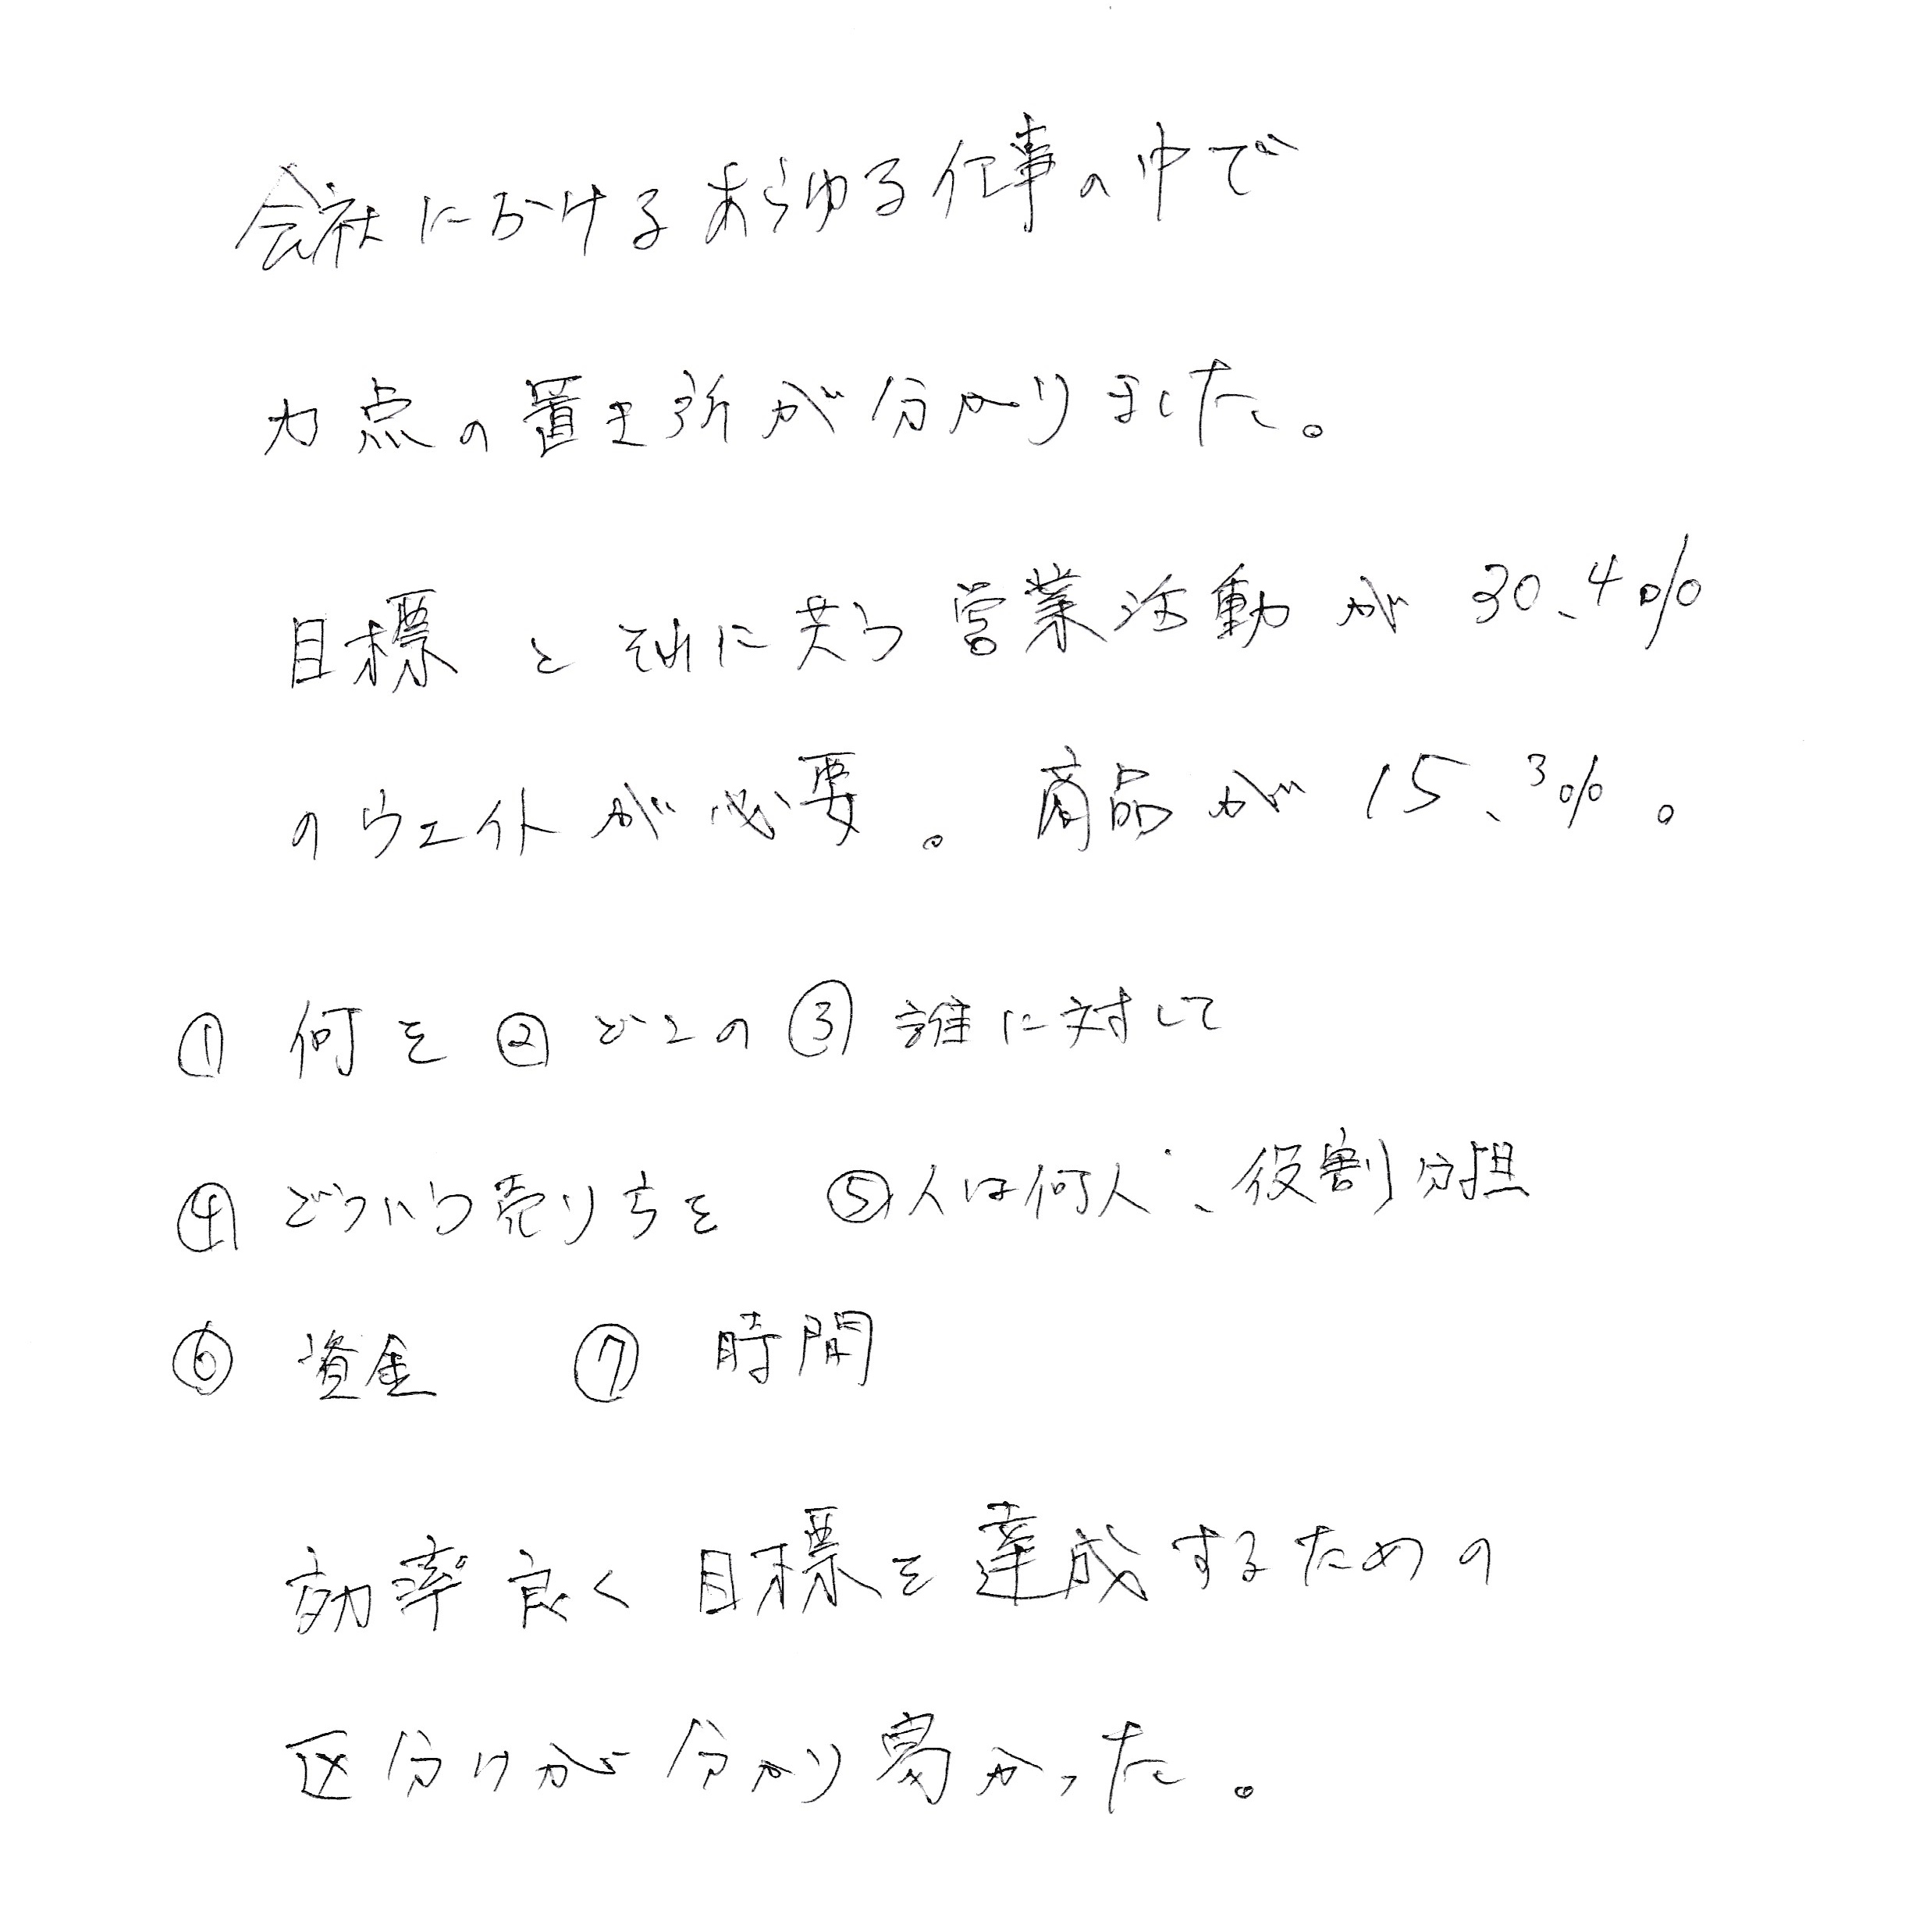 会社におけるあらゆる仕事の中で
力点の置き所が分かりました。
目標とそれに伴う営業活動が30、4%
のウェイトが必要。商品が15、3%。
① 何を ② どこの ③ 誰に対して
④ どういう売り方を ⑤人は何人、役割分担
⑥ 資金 ⑦ 時間
効率良く目標を達成するための
区分けが分かり易かった。